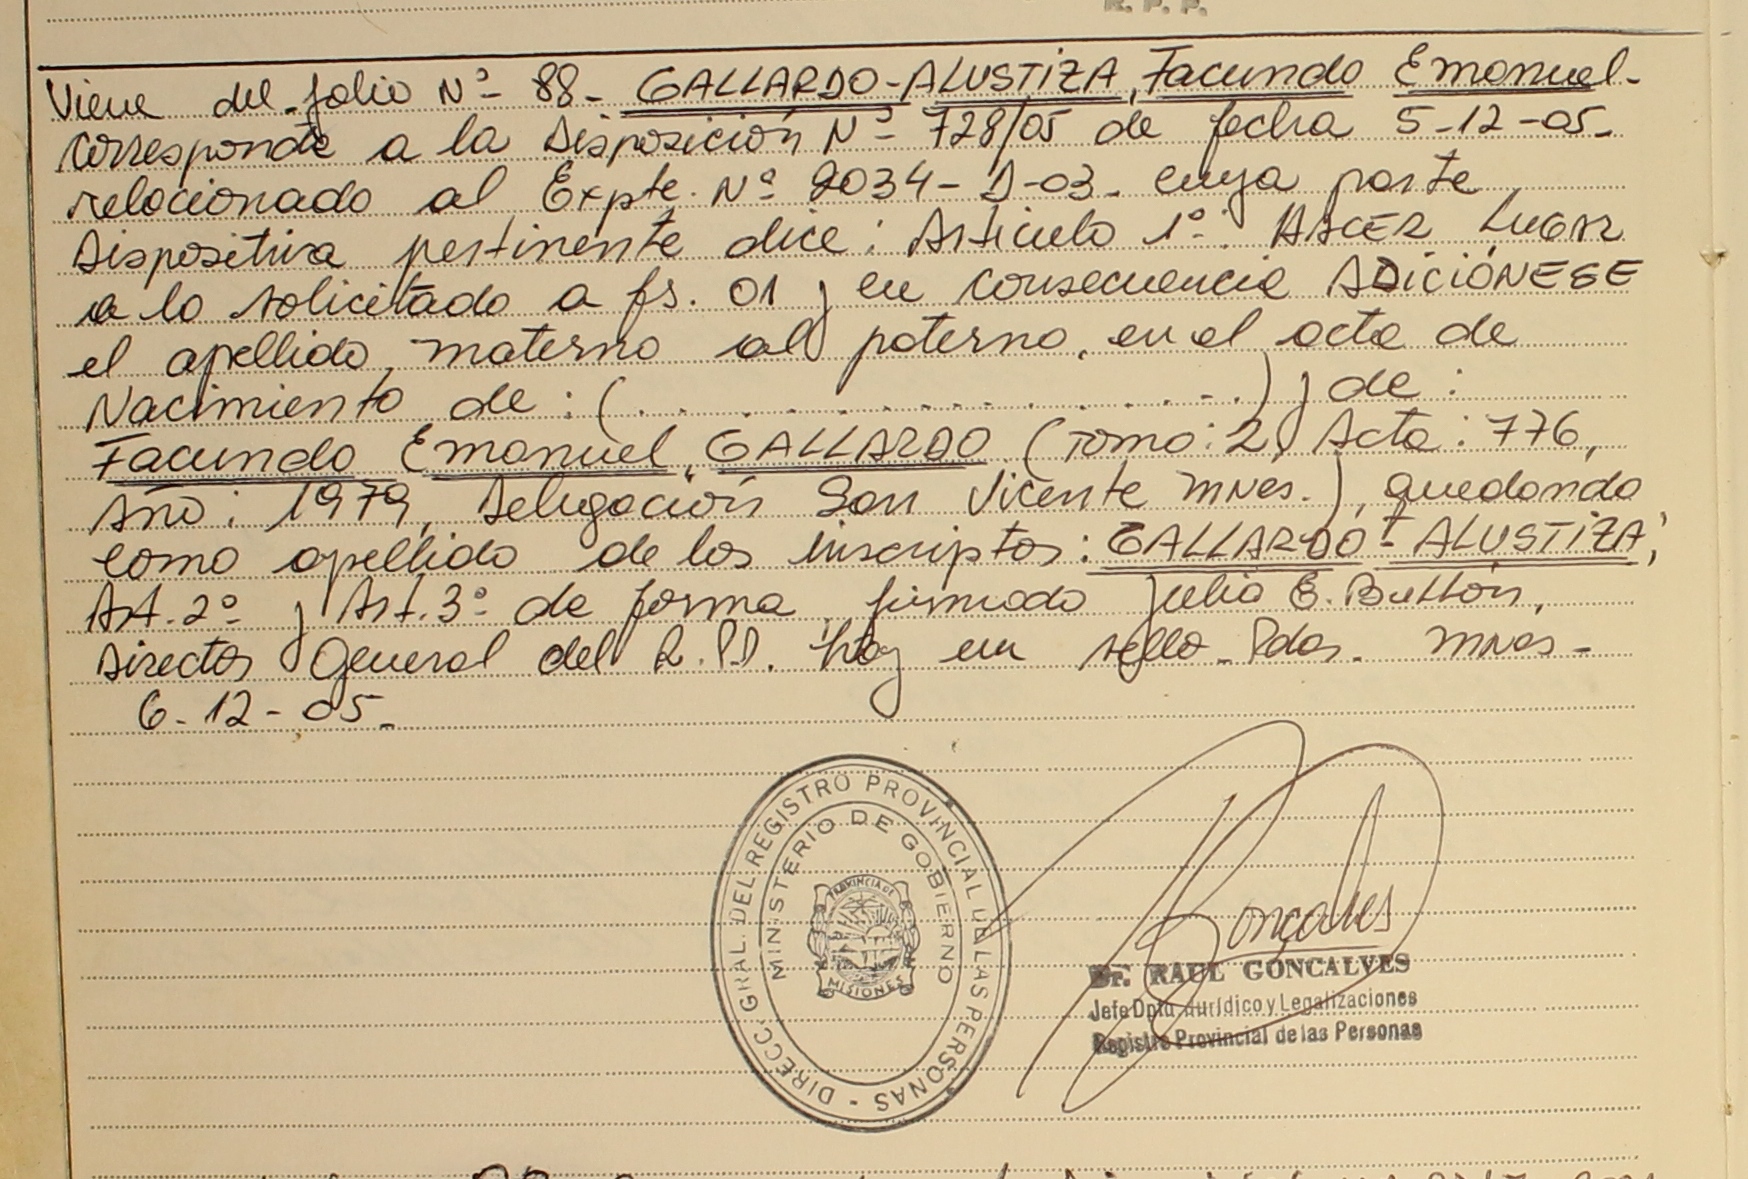 R. P. P.
Viene del folio Nº 88_ GALLARDO-ALUSTIZA, Facundo Emanuel-
Corresponde a la Disposición Nº 728/05 de fecha 5-12-05_
relacionado al Expte. Nº 2034-D-03_ cuya parte
Dispositiva pertinente dice: Artículo 1º: HACER LUGAR
a lo solicitado a fs. 01 y en consecuencia ADICIÓNESE
el apellido materno al paterno, en el acta de
Nacimiento de: (. . . . . . . . . . . . . . . . .) y de:
Facundo Emanuel, GALLARDO (Tomo: 2, Acta: 776,
Año: 1979, Delegación San Vicente Mnes.), quedando
como apellido de los inscriptos: GALLARDO - ALUSTIZA;
Art. 2º y Art. 3º de forma, firmado Julio E. Buttón,
Director General del R.P.P. hay un sello_ Pdas. Mnes-
6-12-05_
DIRECC. GRAL. DEL REGISTRO PROVINCIAL DE LAS PERSONAS -
MINISTERIO DE GOBIERNO
PROVINCIA DE
MISIONES
Goncalves
Dr. RAUL GONCALVES
Jefe Dpto. Jurídico y Legalizaciones
Registro Provincial de las Personas